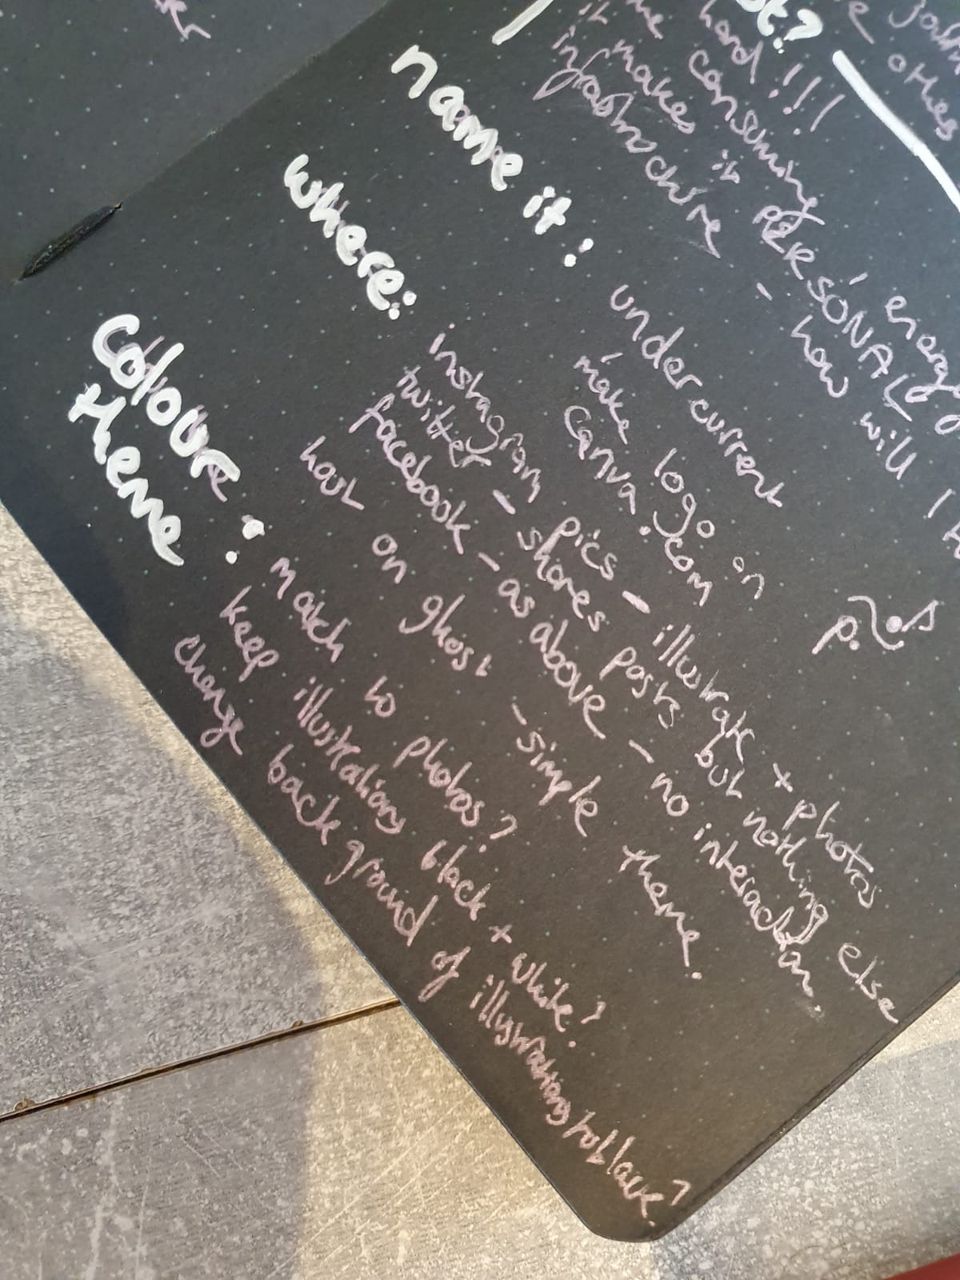 ot?
hard!!!
other
me consuming
it makes it PERSONAL
energy
infrastructure - how will I
name it:
undercurrent
make logo on
canva.com
where:
instagram - pics - illustrate + photos
twitter - shares posts but nothing else
facebook - as above - no interaction.
host on ghost - simple theme.
colour theme:
match to photos?
keep illustrations black + white?
change background of illustrations/